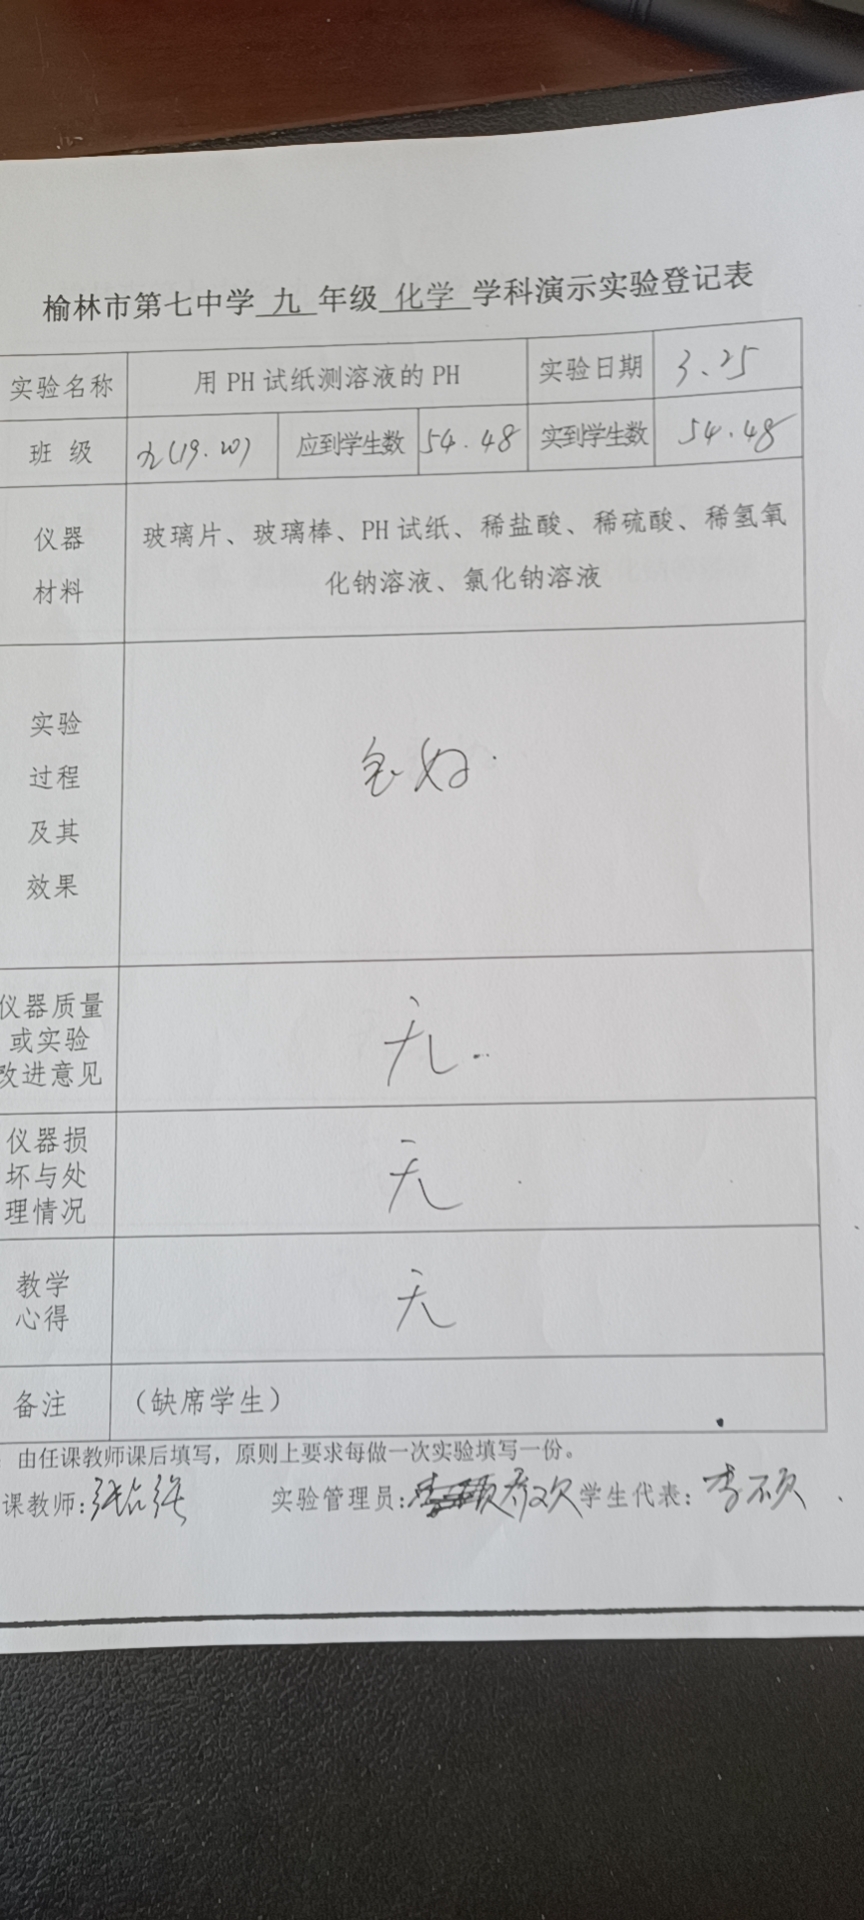 榆林市第七中学 九 年级 化学 学科演示实验登记表
实验名称 用 PH 试纸测溶液的 PH 实验日期 3.25
班 级 九(19.20) 应到学生数 54.48 实到学生数 54.48
仪器 材料 玻璃片、玻璃棒、PH 试纸、稀盐酸、稀硫酸、稀氢氧
化钠溶液、氯化钠溶液
实验
过程
及其
效果
仪器质量
或实验
改进意见
无.
仪器损
坏与处
理情况
无
教学
心得
无
备注 (缺席学生)
由任课教师课后填写，原则上要求每做一次实验填写一份。
课教师: 实验管理员: 学生代表: 李硕